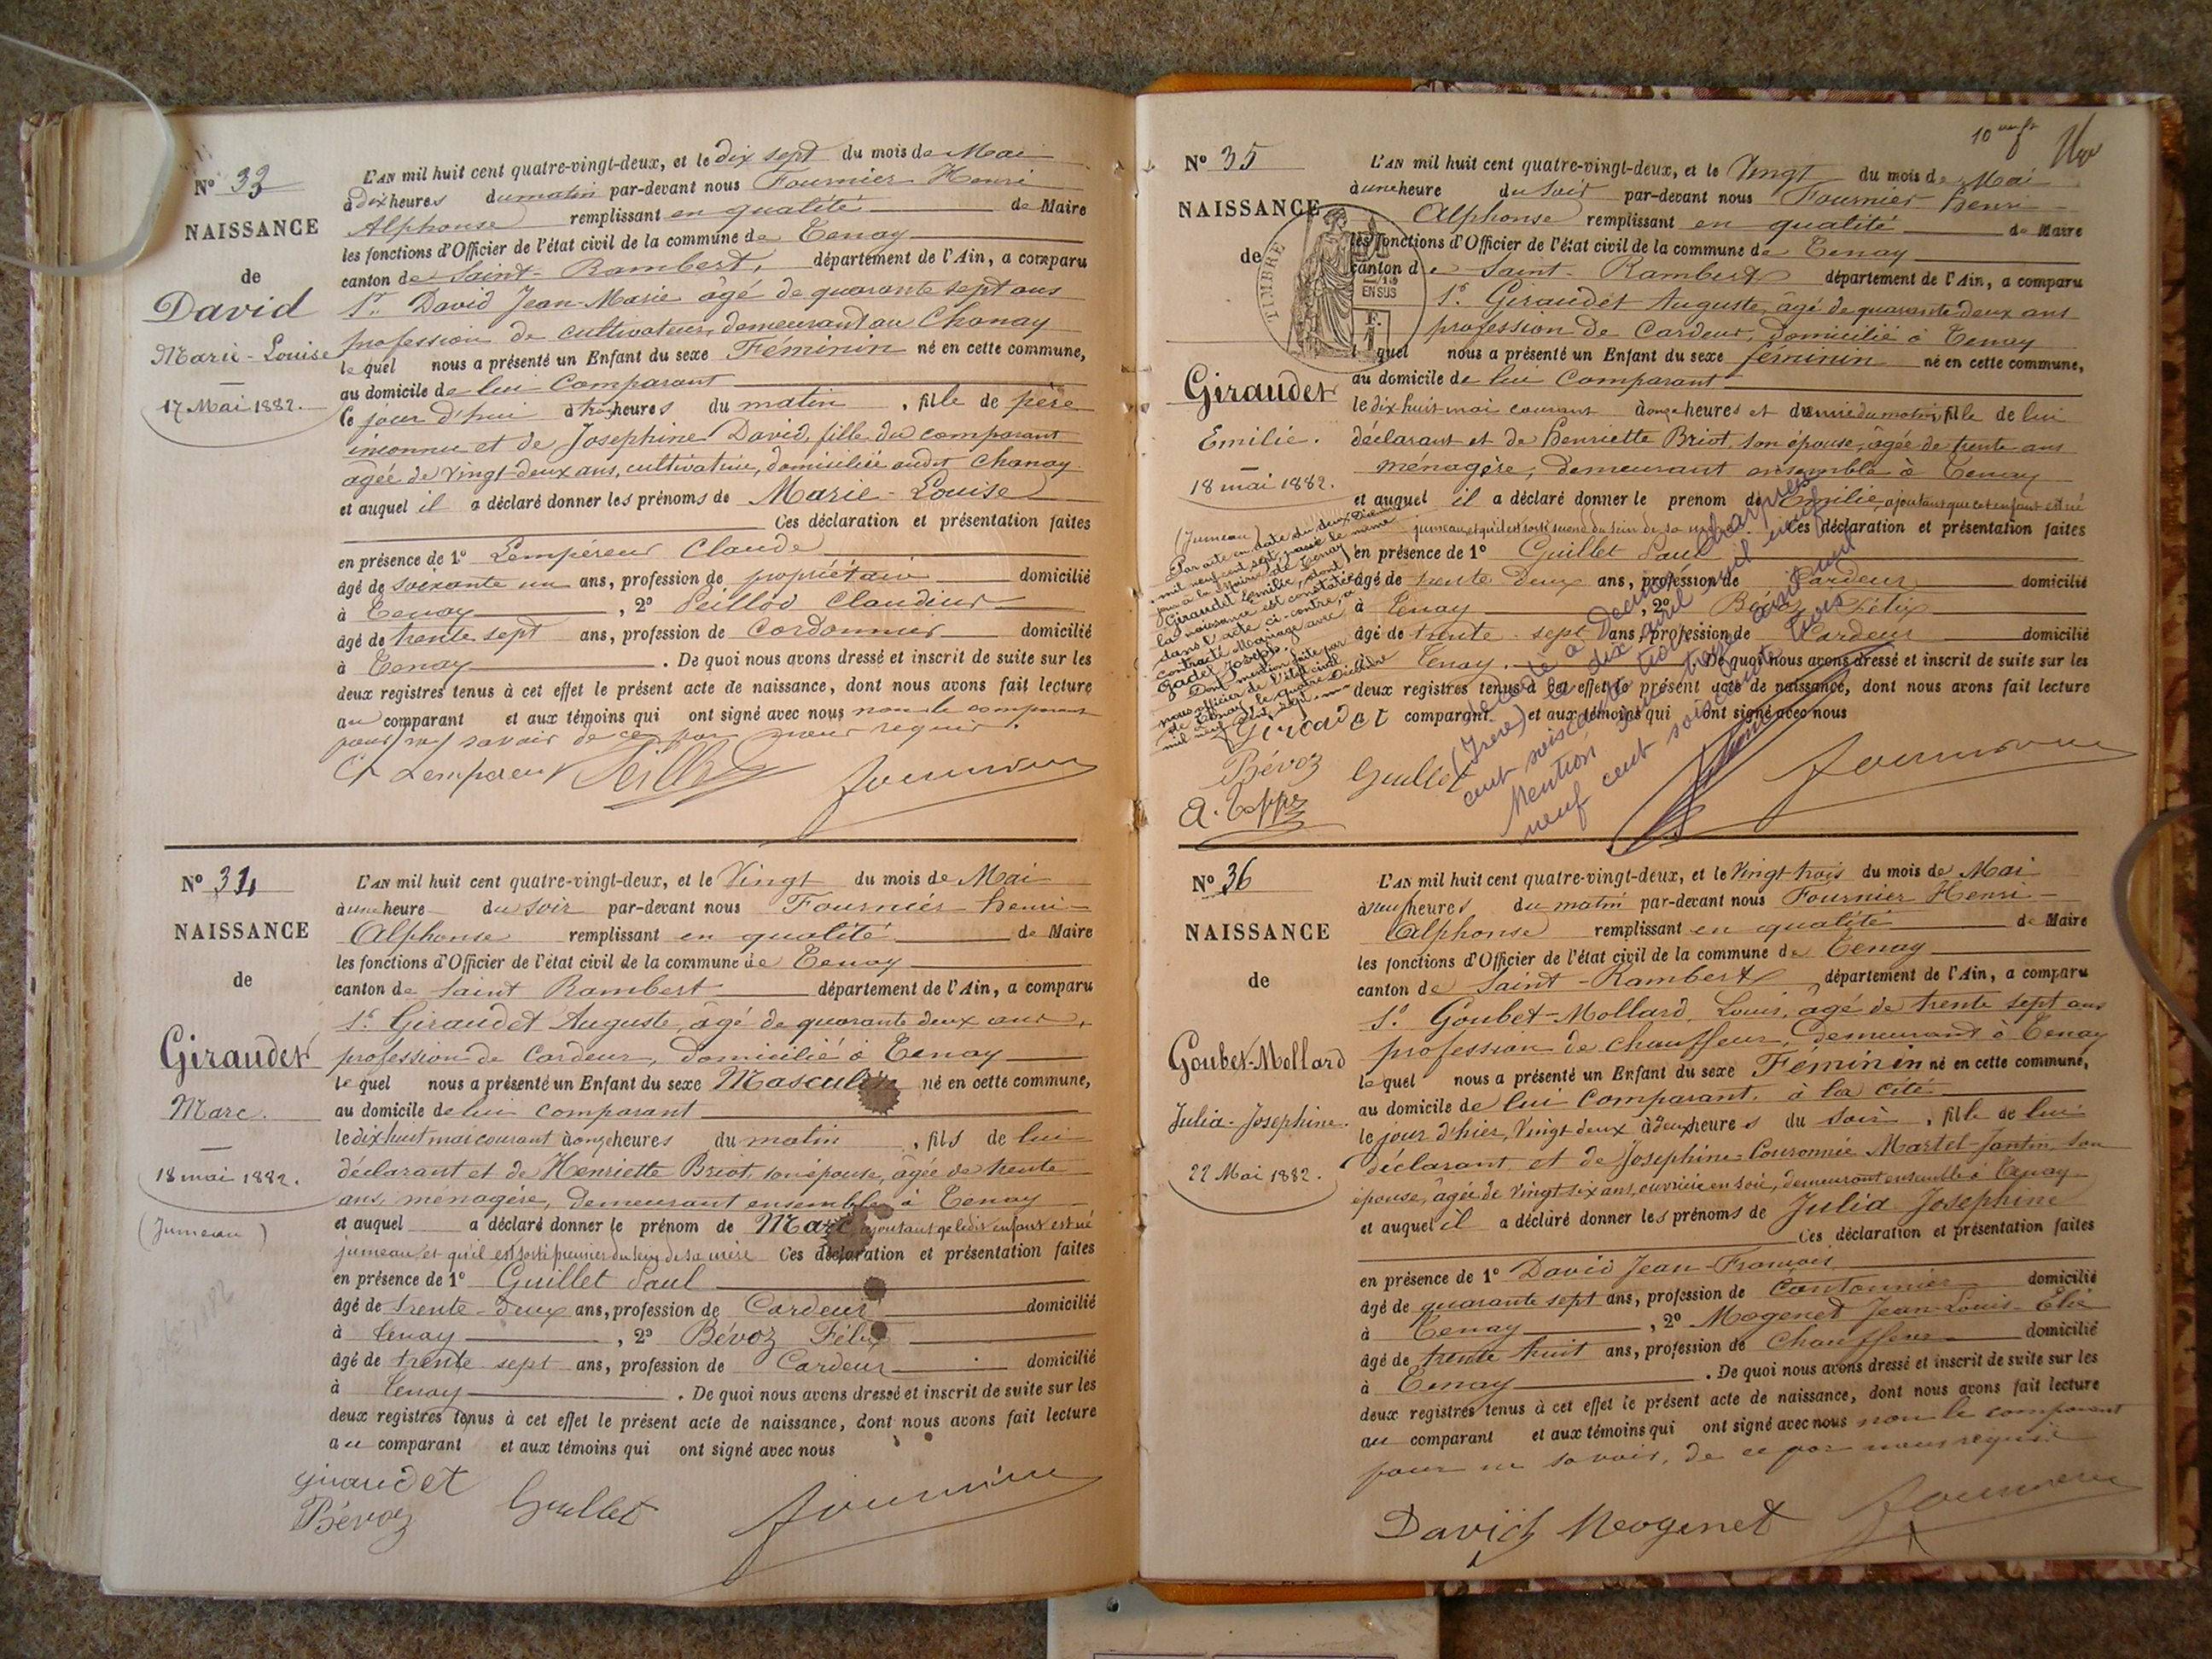 Nº 33
NAISSANCE
de
David
Marie-Louise
17 Mai 1882.
L'AN mil huit cent quatre-vingt-deux, et le dix sept du mois de Mai
à dix heures du matin par-devant nous Fournier Henri
Alphonse remplissant en qualité de Maire
les fonctions d'Officier de l'état civil de la commune de Tenay
canton de Saint-Rambert, département de l'Ain, a comparu
Sr. David Jean-Marie âgé de quarante sept ans
profession de cultivateur, demeurant au Chanay
lequel nous a présenté un Enfant du sexe Féminin né en cette commune,
au domicile de lui Comparant
le jour d'hui à trois heures du matin, fille de père
inconnu et de Josephine David, fille du comparant
âgée de vingt-deux ans, cultivatrice, domiciliée audit Chanay
et auquel il a déclaré donner les prénoms de Marie-Louise
Ces déclaration et présentation faites
en présence de 1º Lempéreur Claude
âgé de soixante un ans, profession de propriétaire domicilié
à Tenay, 2º Peilloд Claudius
âgé de trente sept ans, profession de Cordonnier domicilié
à Tenay. De quoi nous avons dressé et inscrit de suite sur les
deux registres tenus à cet effet le présent acte de naissance, dont nous avons fait lecture
au comparant et aux témoins qui ont signé avec nous non le comparant
pour ne savoir de ce par nous requis.
Cl Lempereur Peillod Fournier
Nº 34
NAISSANCE
de
Giraudet
Marc.
18 mai 1882.
(Jumeau)
L'AN mil huit cent quatre-vingt-deux, et le Vingt du mois de Mai
à une heure du soir par-devant nous Fournier henri
Alphonse remplissant en qualité de Maire
les fonctions d'Officier de l'état civil de la commune de Tenay
canton de Saint Rambert département de l'Ain, a comparu
Sr. Giraudet Auguste, âgé de quarante deux ans,
profession de Cardeur, domicilié à Tenay
lequel nous a présenté un Enfant du sexe Masculin né en cette commune,
au domicile de lui comparant
le dix huit mai courant à onze heures du matin, fils de lui
déclarant et de Henriette Briot, son épouse, âgée de trente
ans, ménagère, demeurant ensemble à Tenay
et auquel a déclaré donner le prénom de Marc, ajoutant que ledit enfant est né
jumeau et qu'il est sorti premier du sein de sa mère Ces déclaration et présentation faites
en présence de 1º Guillet Paul
âgé de trente-deux ans, profession de Cardeur domicilié
à Tenay, 2º Bévoz Félix
âgé de trente sept ans, profession de Cardeur domicilié
à Tenay. De quoi nous avons dressé et inscrit de suite sur les
deux registres tenus à cet effet le présent acte de naissance, dont nous avons fait lecture
au comparant et aux témoins qui ont signé avec nous
Giraudet
Bévoz Guillet Fournier
10
Nº 35
NAISSANCE
de
TIMBRE
EN SUS
Giraudet
Emilie.
18 mai 1882.
(Jumeau)
Par acte en date du deux Décembre
mil neuf cent sept, passé le même
jour à la Mairie de Tenay
Giraudet Emilie, dont
la naissance est constatée
dans l'acte ci-contre, a
contracté Mariage avec
Gadet Joseph.
Dont mention faite par
nous officier de l'état civil
de Tenay, le quatre Décembre
mil neuf cent sept.
L'AN mil huit cent quatre-vingt-deux, et le Vingt du mois de Mai
à une heure du soir par-devant nous Fournier henri
Alphonse remplissant en qualité de Maire
les fonctions d'Officier de l'état civil de la commune de Tenay
canton de Saint-Rambert département de l'Ain, a comparu
Sr. Giraudet Auguste, âgé de quarante deux ans
profession de Cardeur, domicilié à Tenay
lequel nous a présenté un Enfant du sexe féminin né en cette commune,
au domicile de lui Comparant
le dix huit mai courant à onze heures et demie du matin, fille de lui
déclarant et de henriette Briot, son épouse, âgée de trente ans
ménagère, demeurant ensemble à Tenay
et auquel il a déclaré donner le prenom de Emilie, ajoutant que cet enfant est né
jumeau, et qu'il est sorti second du sein de sa mère Ces déclaration et présentation faites
en présence de 1º Guillet Paul
âgé de trente deux ans, profession de Cardeur domicilié
à Tenay, 2º Bévoz Félix
âgé de trente sept ans, profession de Cardeur domicilié
à Tenay. De quoi nous avons dressé et inscrit de suite sur les
deux registres tenus à cet effet le présent acte de naissance, dont nous avons fait lecture
au comparant et aux témoins qui ont signé avec nous
Décédée à Decines Charpieu
(Isère) le dix avril mil neuf
cent soixante trois
Mention du treize avril mil
neuf cent soixante trois
Giraudet
Bévoz Guillet Fournier
A. Teppe
Nº 36
NAISSANCE
de
Goubet-Mollard
Julia-Josephine.
22 Mai 1882.
L'AN mil huit cent quatre-vingt-deux, et le Vingt trois du mois de Mai
à neuf heures du matin par-devant nous Fournier Henri
Alphonse remplissant en qualité de Maire
les fonctions d'Officier de l'état civil de la commune de Tenay
canton de Saint-Rambert, département de l'Ain, a comparu
Sr. Goubet-Mollard, Louis, âgé de trente sept ans
profession de chauffeur, demeurant à Tenay
lequel nous a présenté un Enfant du sexe Féminin né en cette commune,
au domicile de lui Comparant, à la cité
le jour d'hier, Vingt deux à deux heures du soir, fille de lui
déclarant et de Josephine-Couronnée Martel-Jantin, son
épouse, âgée de vingt six ans, ouvrière en soie, demeurant ensemble à Tenay
et auquel il a déclaré donner les prénoms de Julia Josephine
Ces déclaration et présentation faites
en présence de 1º David Jean-François
âgé de quarante sept ans, profession de Cantonnier domicilié
à Tenay, 2º Mogenet Jean-Louis-Elie
âgé de trente huit ans, profession de Chauffeur domicilié
à Tenay. De quoi nous avons dressé et inscrit de suite sur les
deux registres tenus à cet effet le présent acte de naissance, dont nous avons fait lecture
au comparant et aux témoins qui ont signé avec nous non le comparant
pour ne savoir, de ce par nous requis
David Mogenet Fournier